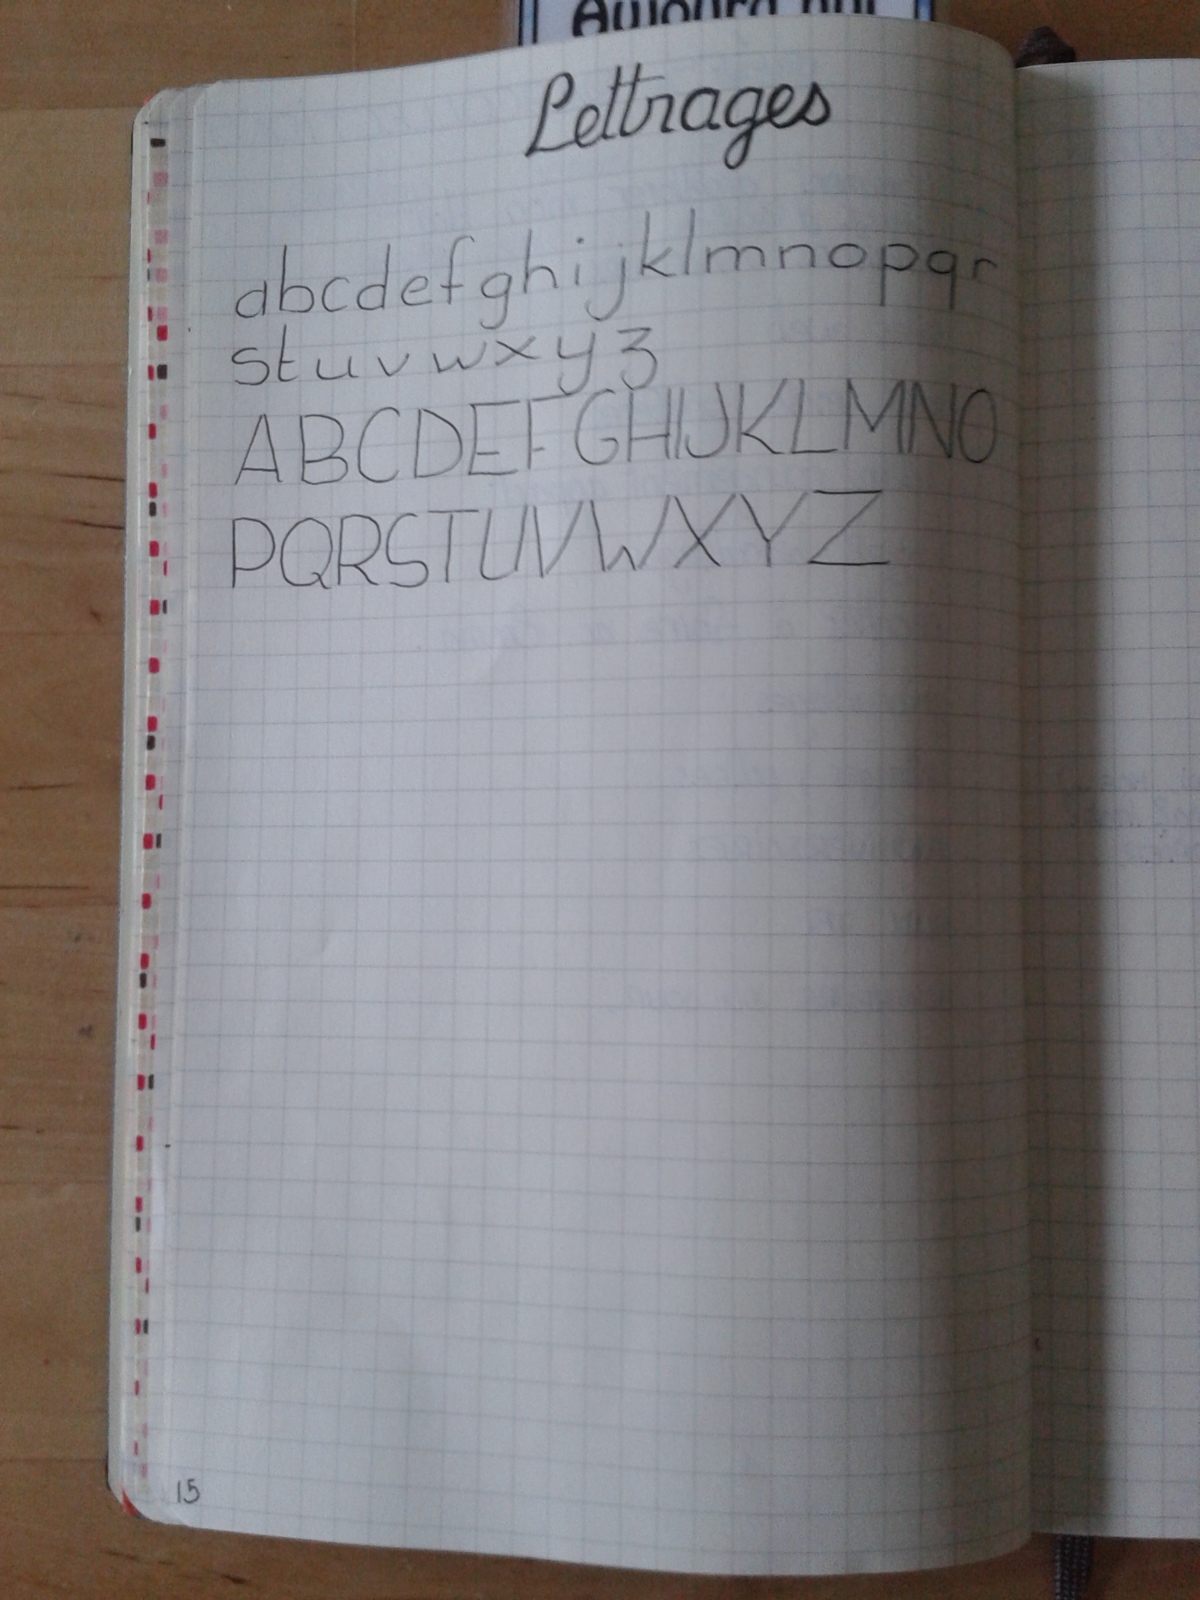 Aujourd'hui
Lettrages
abcdefghijklmnopqr
stuvwxyz
ABCDEFGHIJKLMNO
PQRSTUVWXYZ
15